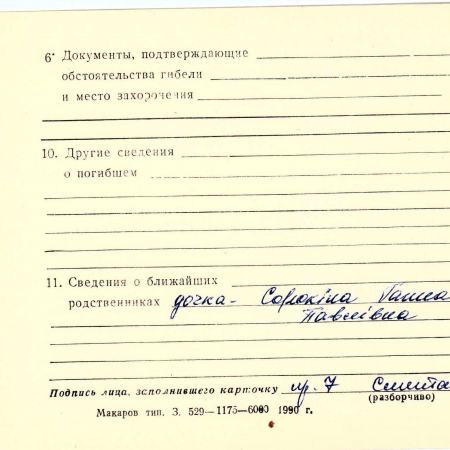 6• Документы, подтверждающие
обстоятельства гибели
и место захорочения
10. Другие сведения
о погибшем
11. Сведения о ближайших
родственниках дочка - Сорокіна Ганна
Павлівна
Подпись лица, зсполнившего карточку пр. 7
(разборчиво)
Макаров тип. З. 529—1175—6000 1990 г.